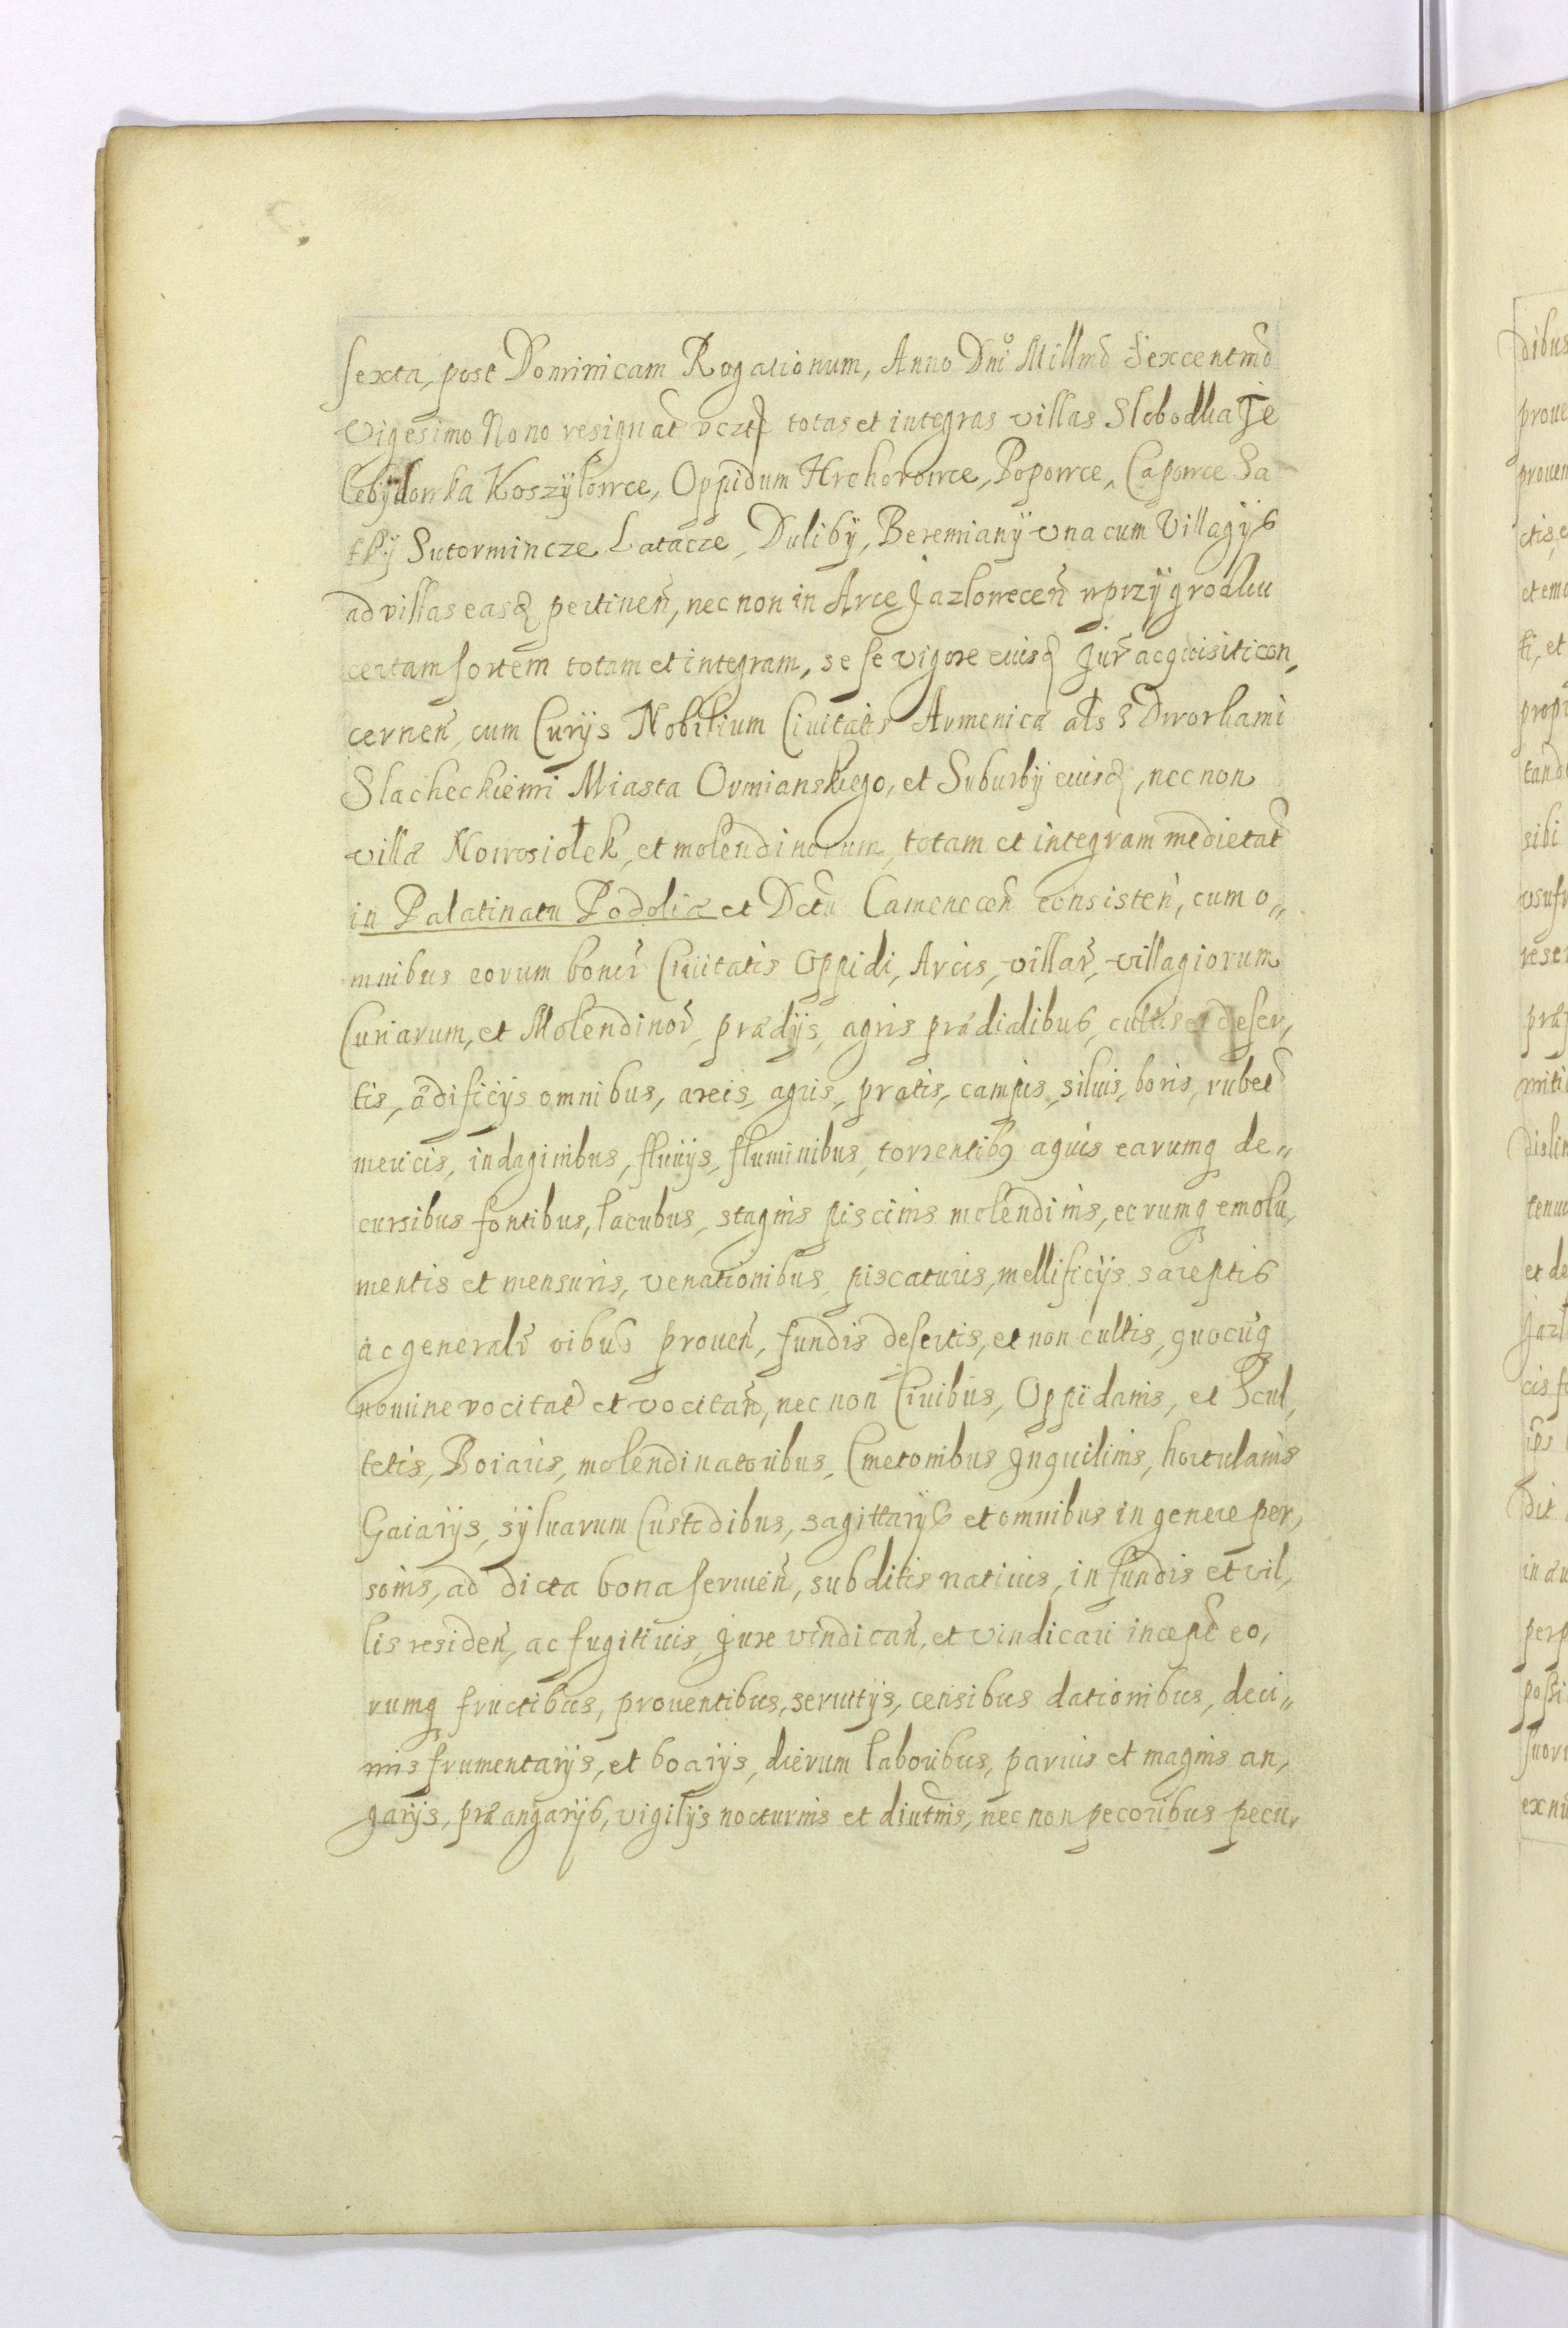 sexta, post Dominicam Rogationum, Anno Dni Millmo Sexcentmo
Vigesimo Nono resignat vczt totas et integras villas Slobodka Je
lebÿdowka Koszÿłowce, Oppidum Hrehorowce, Popowce, Capowce Sa
tkÿ Sutormincze Latacze, Dulibÿ, Beremianÿ vna cum Villagijs
ad villas easq pertinen, nec non in Arce Jazlowecen w przÿgrodku
certam sortem totam et integram, se se vigore eiusq Jur acquisiti con,
cernen, cum Curijs Nobilium Ciuitatis Armenicæ als s Dworkami
Slacheckiemi Miasta Ormianskiego, et Suburbij eiusq, nec non
villæ Nowosiołek, et molendinorum, totam et integram medietat
in Palatinatu Podoliæ et Dctu Camenecen consisten, cum o„
mnibus eorum bonor Ciuitatis Oppidi, Arcis, villar, villagiorum
Curiarum, et Molendinor, prædijs, agris prædialibus, cultis et deser,
tis, ædificijs omnibus, areis, agris, pratis, campis, siluis, boris, rubet
mericis, indaginibus, fluuijs, fluminibus, torrentibq aquis earumq de„
cursibus fontibus, lacubus, stagnis piscinis molendinis, eorumq emolu,
mentis et mensuris, venationibus, piscaturis, mellificijs sareptis
ac generalr oibus prouen, fundis desertis, et non cultis, quocuq
nomine vocitat et vocitan, nec non Ciuibus, Oppidanis, et Scul,
tetis, Boiaris, molendinatoribus, Cmetonibus Jnquilinis, hortulanis
Gaiarijs, syluarum Custodibus, sagittarijs et omnibus in genere per,
sonis, ad dicta bona seruien, subditis natiuis, in fundis et vil,
lis residen, ac fugitiuis, Jure vindican, et vindicari incept eo,
rumq fructibus, prouentibus, seruitijs, censibus dationibus, deci„
mis frumentarijs, et boarijs, dierum laboribus, paruis et magnis an,
garijs, præangarijs, vigilijs nocturnis et diutnis, nec non pecoribus pecu,